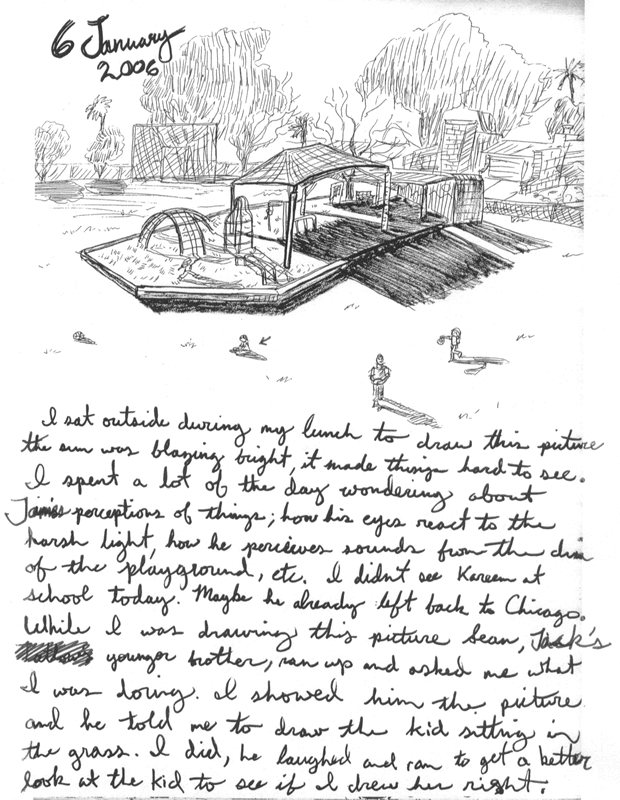 6 January
2006
I sat outside during my lunch to draw this picture
the sun was blazing bright, it made things hard to see.
I spent a lot of the day wondering about
perceptions of things; how his eyes react to the
harsh light, how he percieves sounds from the din
of the playground, etc. I didn't see Kareem at
school today. Maybe he already left back to Chicago.
While I was drawing this picture Sean, Jack's
younger brother, ran up and asked me what
I was doing. I showed him the picture
and he told me to draw the kid sitting in
the grass. I did, he laughed and ran to get a better
look at the kid to see if I drew her right.